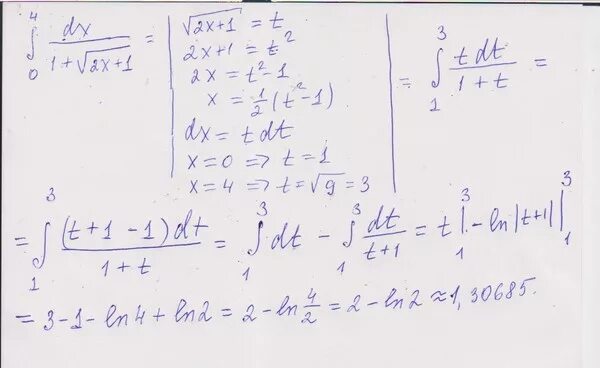 ∫₀⁴ dx/(1+√(2x+1)) = | √(2x+1) = t
2x+1 = t²
2x = t²-1
x = 1/2 (t²-1)
dx = t dt
x=0 => t=1
x=4 => t=√9=3 | = ∫₁³ t dt/(1+t) =
= ∫₁³ (t+1-1)dt/(1+t) = ∫₁³ dt - ∫₁³ dt/(t+1) = t|₁³ - ln|t+1||₁³
= 3-1-ln4+ln2 = 2-ln 4/2 = 2-ln2 ≈ 1,30685.